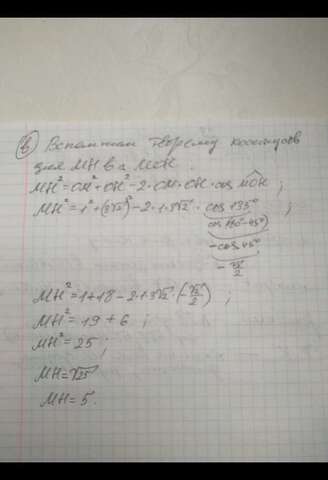 в) Вспомним теорему косинусов
для MH в △ MOH.
MH² = OM² + OH² - 2·OM·OH·cos MOH;
MH² = 1² + (3√2)² - 2·1·3√2·cos 135°;
cos(180°-45°)
-cos 45°
-√2/2
MH² = 1+18-2·1·3√2·(-√2/2);
MH² = 19 + 6;
MH² = 25;
MH = √25
MH = 5.